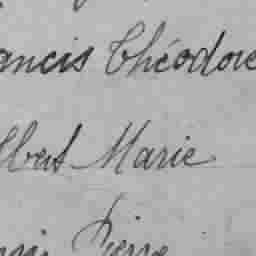 ancis Théodore
lbert Marie
Pierre